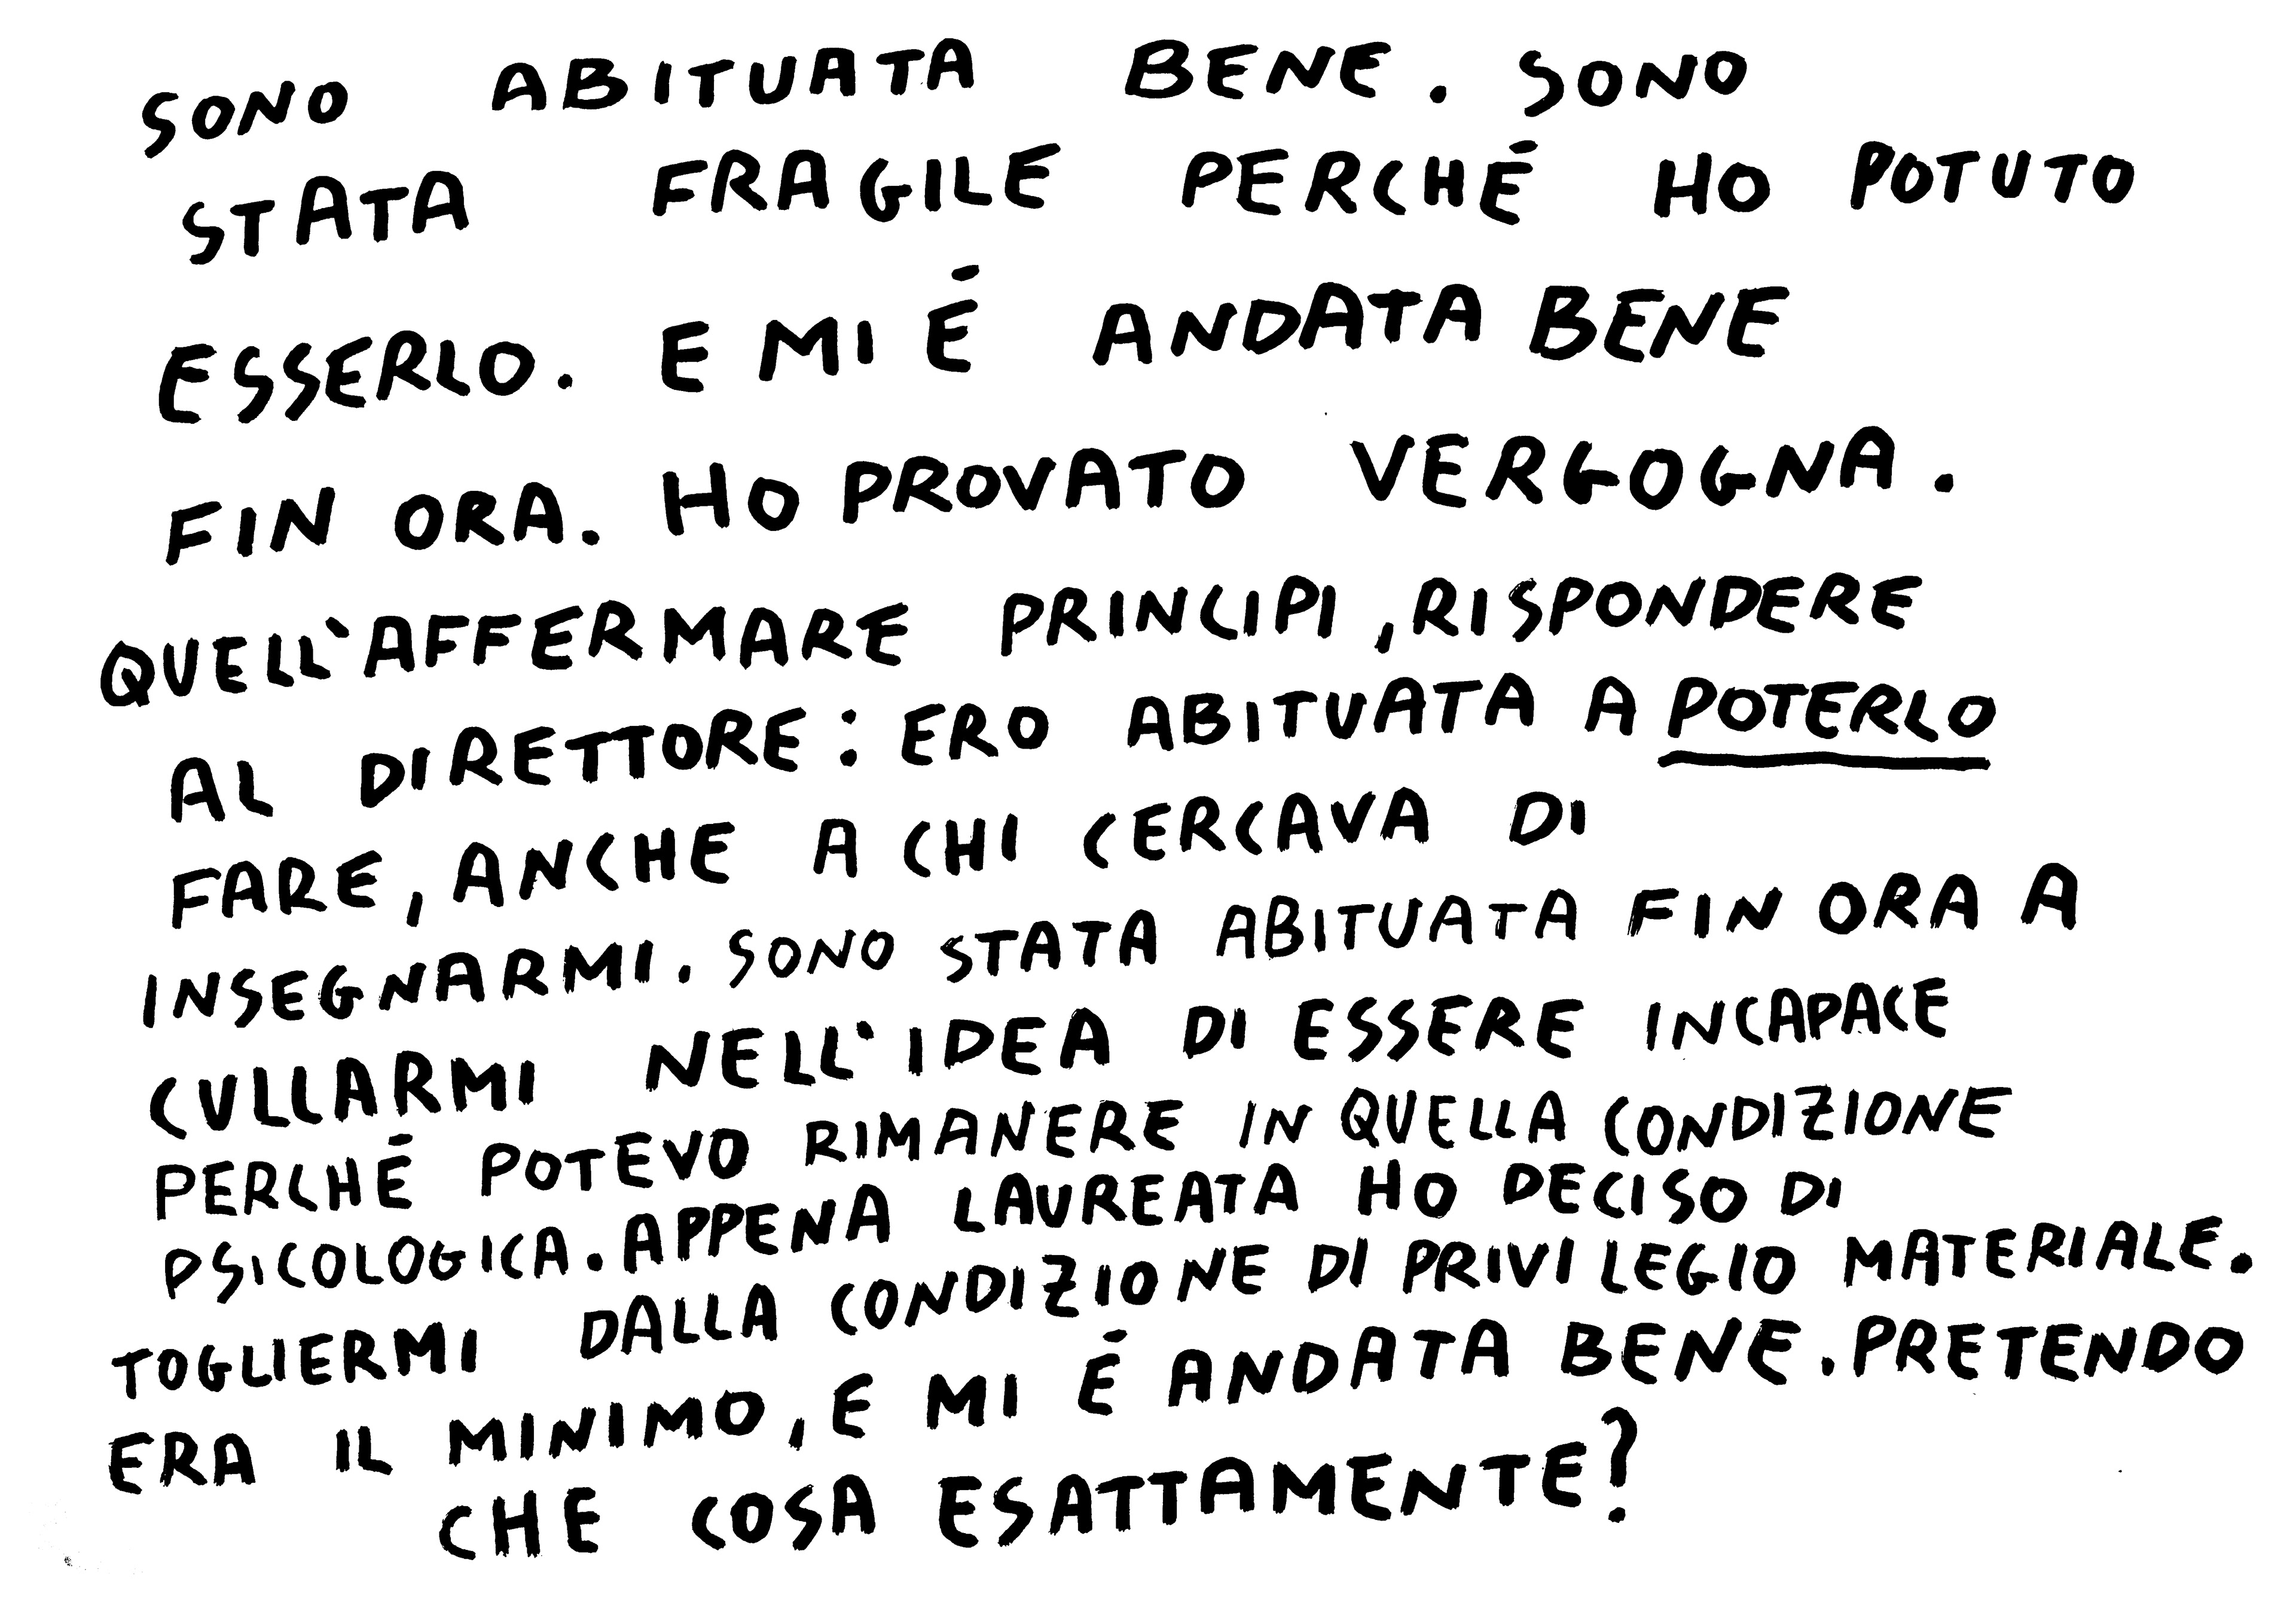 SONO ABITUATA BENE. SONO
STATA FRAGILE PERCHÉ HO POTUTO
ESSERLO. E MI É ANDATA BENE
FIN ORA. HO PROVATO VERGOGNA.
QUELL'AFFERMARE PRINCIPI, RISPONDERE
AL DIRETTORE: ERO ABITUATA A POTERLO
FARE, ANCHE A CHI CERCAVA DI
INSEGNARMI. SONO STATA ABITUATA FIN ORA A
CULLARMI NELL'IDEA DI ESSERE INCAPACE
PERCHÉ POTEVO RIMANERE IN QUELLA CONDIZIONE
PSICOLOGICA. APPENA LAUREATA HO DECISO DI
TOGLIERMI DALLA CONDIZIONE DI PRIVILEGIO MATERIALE.
ERA IL MINIMO, E MI É ANDATA BENE. PRETENDO
CHE COSA ESATTAMENTE?